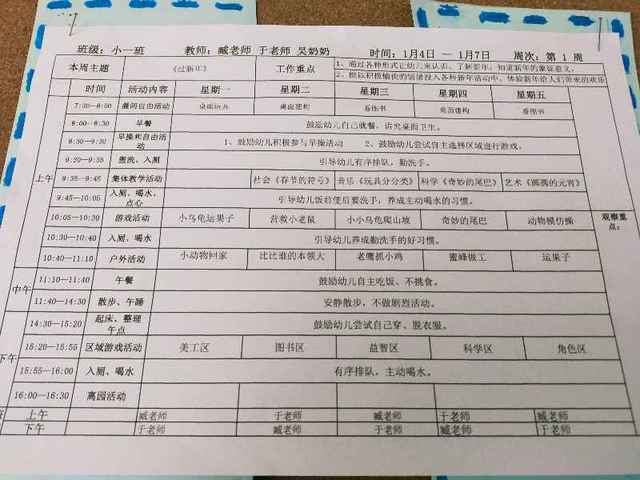 班级：小一班 教师：臧老师 于老师 吴奶奶 时间：1月4日 — 1月7日 周次：第 1 周
本周主题 《过新年》 工作重点 1、通过各种形式让幼儿来认识、了解新年，知道新年的象征意义。
2、能以积极愉快的情绪投入各种新年活动中，体验新年给人们带来的欢乐
时间 活动内容 星期一 星期二 星期三 星期四 星期五
7:30—8:00 晨间自由活动 桌面玩具 桌面建构 看图书 桌面建构 看图书
8:00—8:30 早餐 鼓励幼儿自己就餐，讲究桌面卫生。
8:30—9:20 早操和自由活动 1、鼓励幼儿积极参与早操活动 2、鼓励幼儿尝试自主选择区域进行游戏。
9:20—9:35 盥洗、入厕 引导幼儿有序排队，勤洗手。
上午 9:35—9:45 集体教学活动 社会《春节的符号》 音乐《玩具分分类》 科学《奇妙的尾巴》 艺术《圆圆的元宵》
9:45—10:05 入厕、喝水、点心 引导幼儿饭前便后要洗手，养成主动喝水的习惯。
10:05—10:30 游戏活动 小乌龟运果子 营救小老鼠 小小乌龟爬山坡 奇妙的尾巴 动物模仿操 观察重点：
10:30—10:40 入厕、喝水 引导幼儿养成勤洗手的好习惯。
10:40—11:10 户外活动 小动物回家 比比谁的本领大 老鹰抓小鸡 蜜蜂做工 运果子
中午 11:10—11:40 午餐 鼓励幼儿自主吃饭、不挑食。
11:40—14:30 散步、午睡 安静散步，不做剧烈活动。
14:30—15:20 起床、整理 午点 鼓励幼儿尝试自己穿、脱衣服。
下午 15:20—15:55 区域游戏活动 美工区 图书区 益智区 科学区 角色区
15:55—16:00 入厕、喝水 有序排队，主动喝水。
16:00—16:30 离园活动
上午 臧老师 于老师 臧老师 于老师 臧老师
下午 于老师 臧老师 于老师 臧老师 于老师